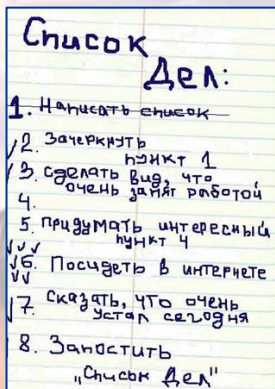 Список
Дел:
1. Написать список
2. Зачеркнуть
пункт 1
3. Сделать вид, что
очень занят работой
4.
5. Придумать интересный
пункт 4
6. Посидеть в интернете
7. Сказать, что очень
устал сегодня
8. Запостить
"Список Дел"